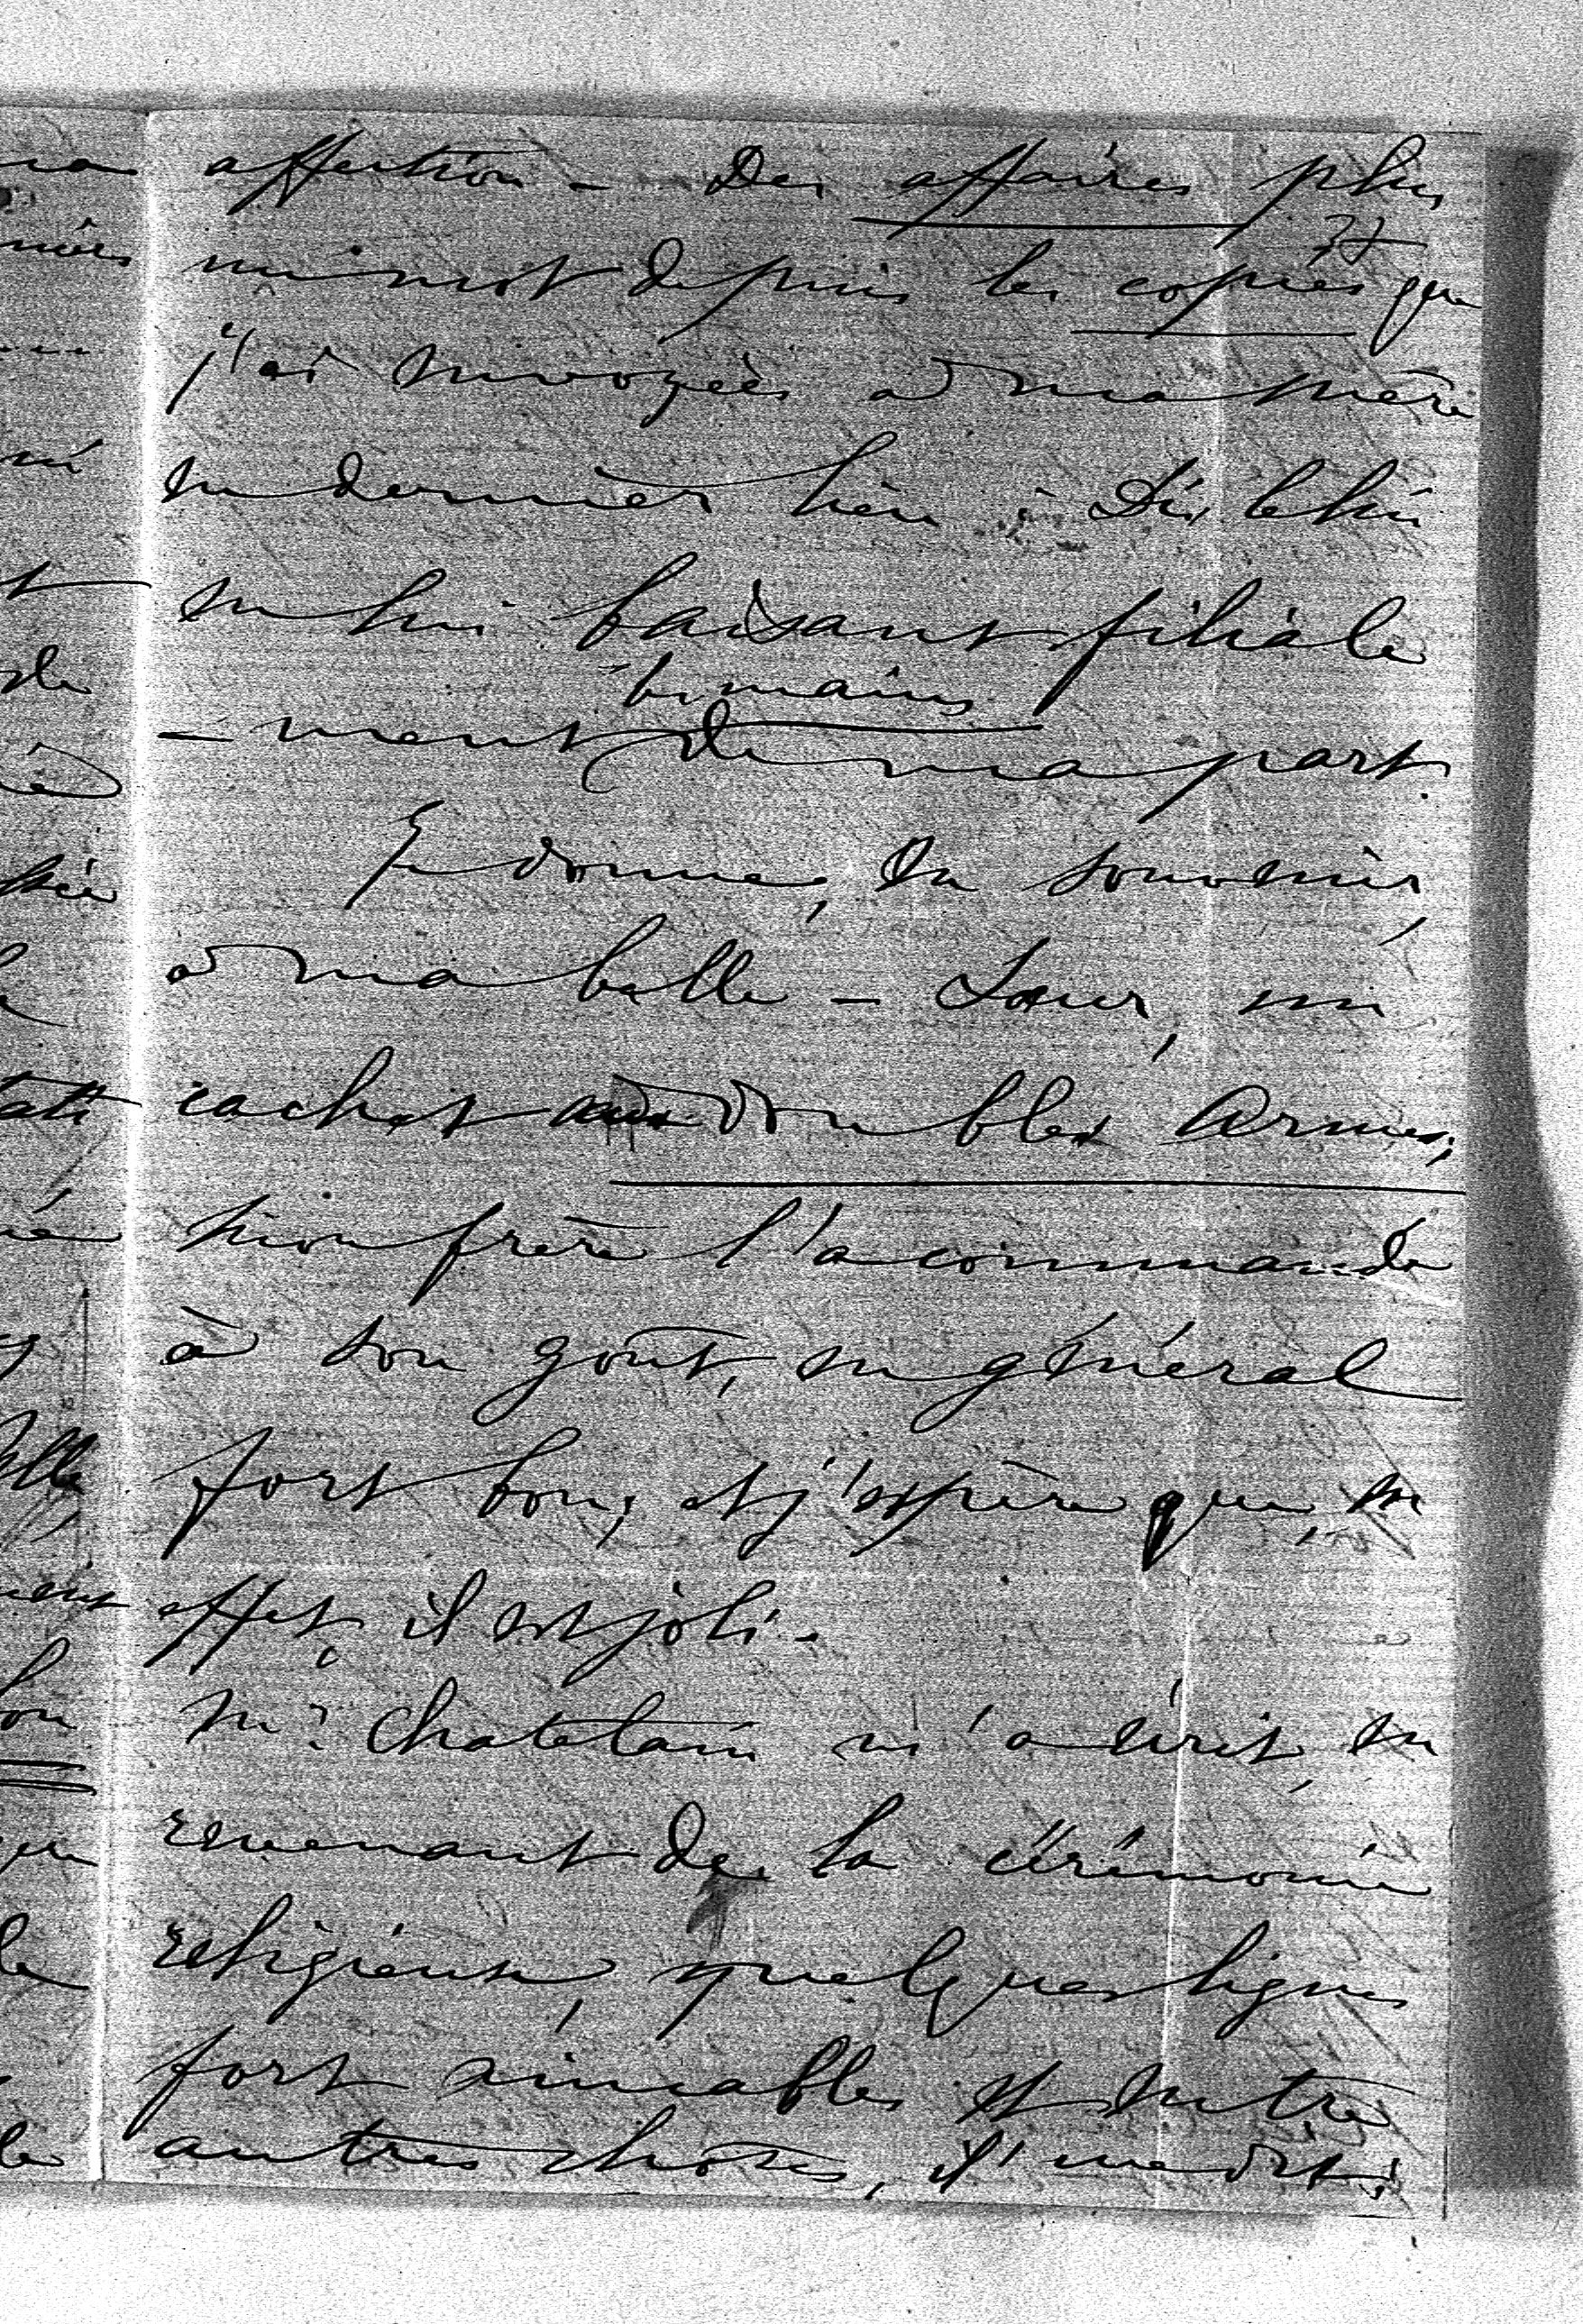 affection - Des affaires plus
un mot depuis les copies que
j'ai envoyées à ma mère
en dernier lieu : Dis le lui
en lui baisant filiale
les mains
- ment de ma part
Je donne, en souvenir
à ma belle - Sœur, un
cachet aux doubles Armes,
mon frère l'a commandé
à son goût, en général
fort bon, et j'espère que, en
effet, il est joli -
Mr Chatelain m'a écrit, en
revenant de la cérémonie
religieuse, quelques lignes
fort aimables et entre
autres choses, il me dit :